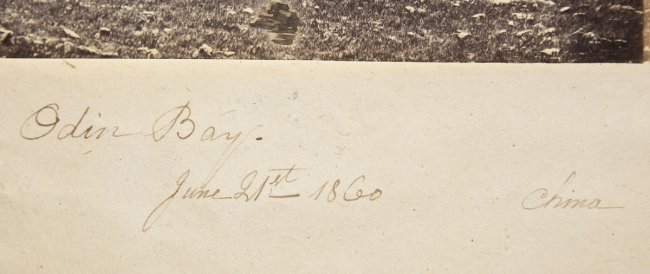 Odin Bay.
June 21st 1860 China